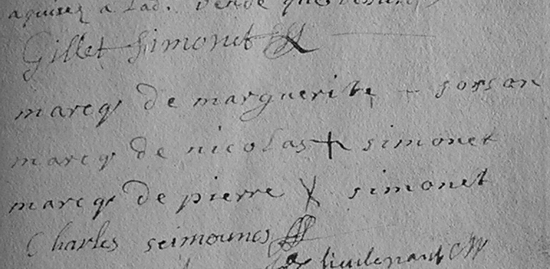 Gillet Simonet
marcq de marguerite - sorson
marcq de nicolas + simonet
marcq de pierre X simonet
Charles seimounes
lieutenant